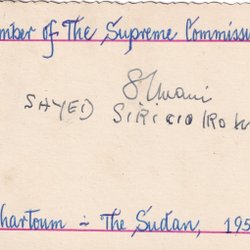 mber of The Supreme Commissi
SAYED SIRICIO IRO W
hartoum - The Sudan, 195